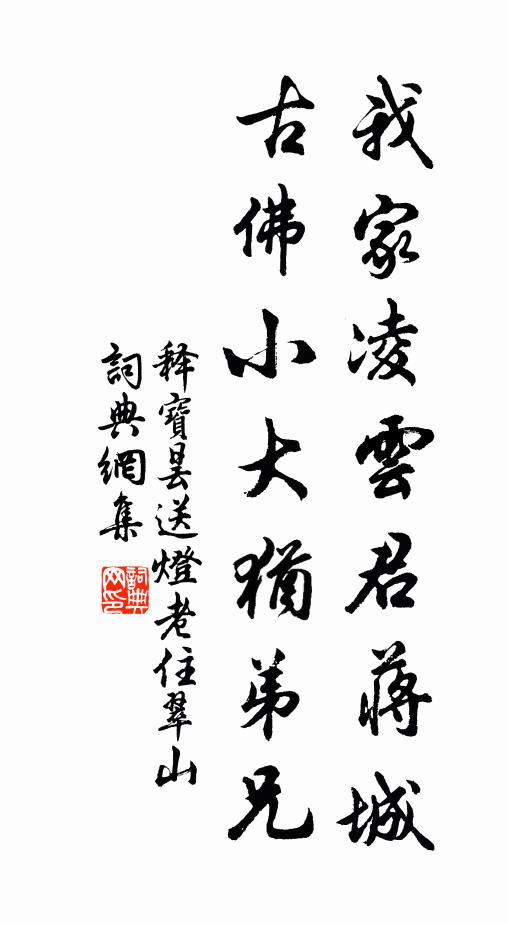 我家凌雲君蔣城
古佛小大猶弟兄
释寶昙送燈老住翠山
詞典網集
詞典網印